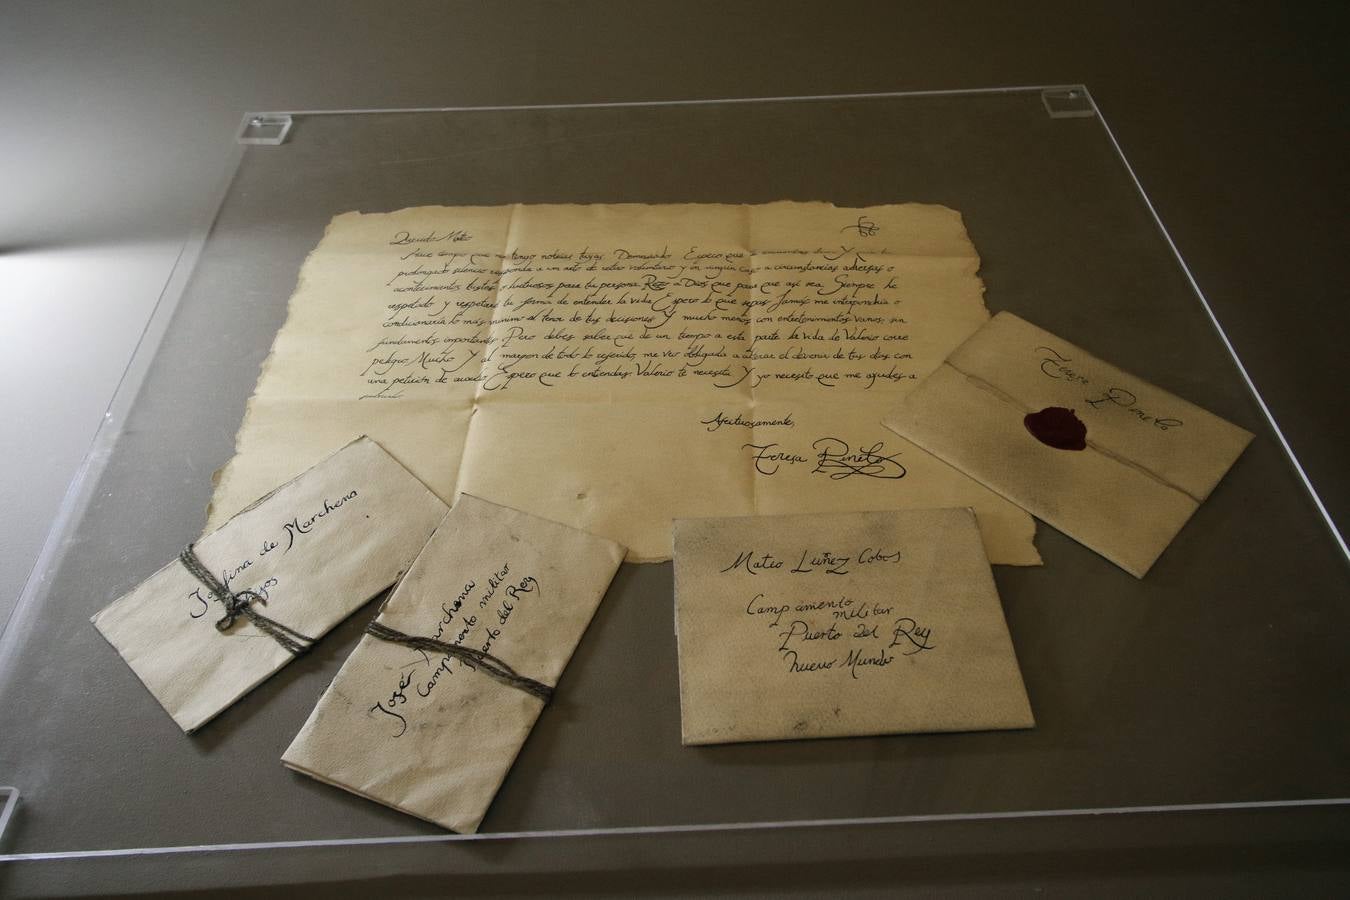 Querido Mateo
Hace tiempo que no tengo noticias tuyas. Demasiado. Espero que se encuentres bien Y que tu
prolongado silencio responda a un acto de retiro voluntario y en ningún caso a circunstancias adversas o
acontecimientos tristes o luctuosos para tu persona. Rezo a Dios que para que así sea. Siempre he
respetado y respetaré tu forma de entender la vida. Espero lo que sepas. Jamás me interpondría o
condicionaría lo más mínimo al tenor de tus decisiones. Y mucho menos con entretenimientos vanos, sin
fundamentos importantes. Pero debes saber que de un tiempo a esta parte la vida de Valerio corre
peligro. Mucho. Y al margen de todo lo referido, me veo obligada a alterar el devenir de tus días con
una petición de auxilio. Espero que lo entiendas. Valerio te necesita. Y yo necesito que me ayudes a
Afectuosamente,
Teresa Pinelo
Teresa Pinelo
Josefina de Marchena
José Marchena
Campamento militar
Puerto del Rey
Mateo Luñez Cobos
Campamento
militar
Puerto del Rey
Nuevo Mundo